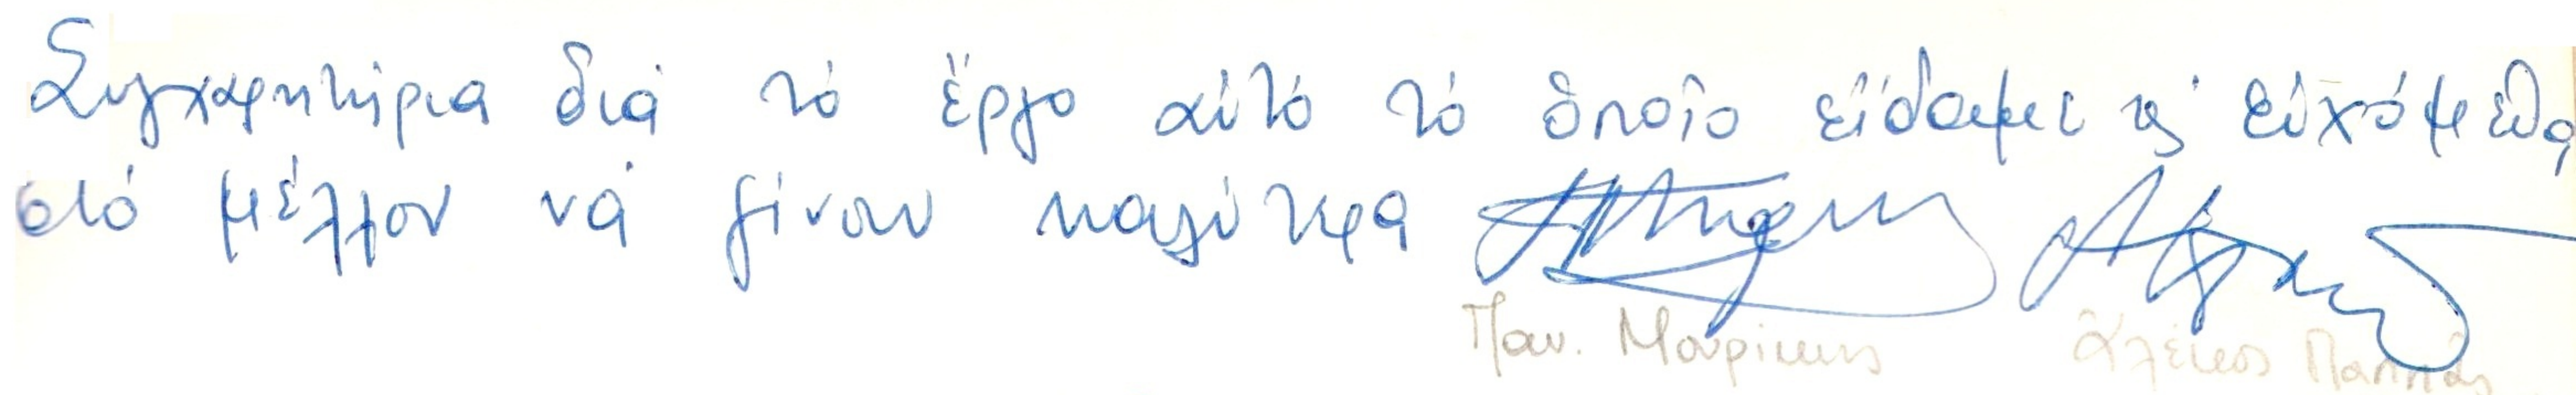 Συγχαρητήρια διά τό ἔργο αὐτό τό ὁποῖο εἴδαμε κ' εὐχόμεθα
στό μέλλον νά γίνουν καλύτερα
Παν. Μουρίκης Ἀλέκος Παππάς